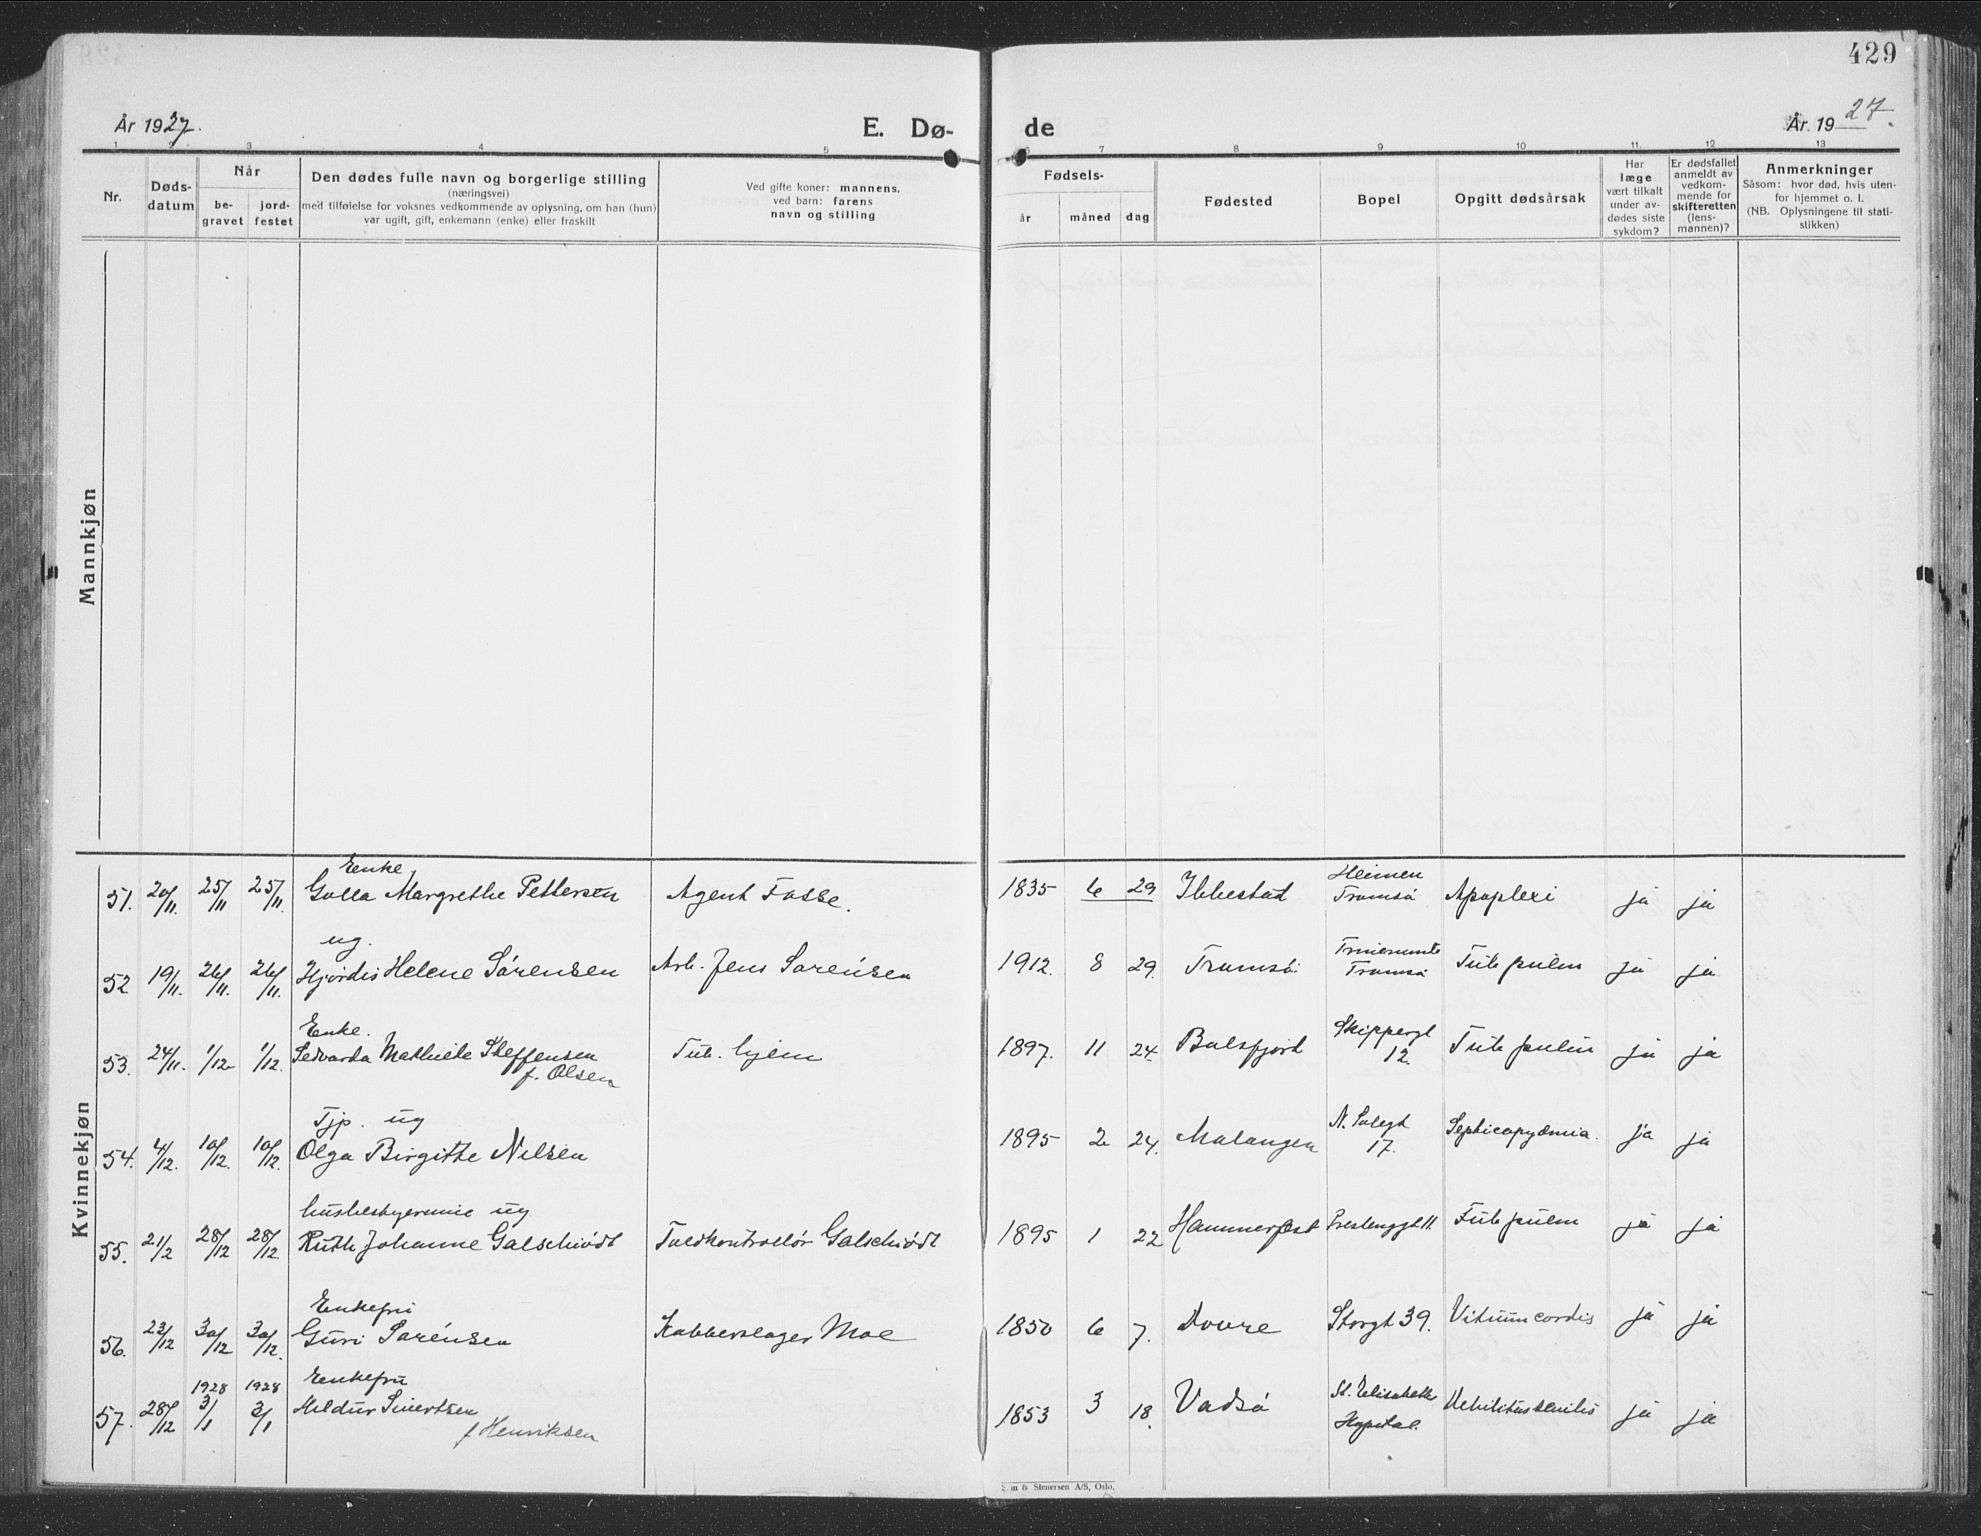 429
År 1927.
E. Dø-
de
År 1927.
1 2 3 4 5 6 7 8 9 10 11 12 13
Nr.
Døds-
datum
Når
be-
gravet
jord-
festet
Den dødes fulle navn og borgerlige stilling
(næringsvei)
med tilføielse for voksnes vedkommende av oplysning, om han (hun)
var ugift, gift, enkemann (enke) eller fraskilt
Ved gifte koner: mannens,
ved barn: farens
navn og stilling
Fødsels-
år
måned
dag
Fødested
Bopel
Opgitt dødsårsak
Har
læge
vært tilkalt
under av-
dødes siste
sykdom?
Er dødsfallet
anmeldt av
vedkom-
mende for
skifteretten
(lens-
mannen)?
Anmerkninger
Såsom: hvor død, hvis uten-
for hjemmet o. l.
(NB. Oplysningene til stati-
stikken)
Mannkjøn
Kvinnekjøn
Enke Heimen
51. 20/11. 25/11 25/11. Golla Margrethe Pettersen Agent Fosse. 1835 6 29 Ibbestad Tromsø Apoplexi ja ja
ug.
52 19/11. 26/11. 26/11. Hjördis Helene Sørensen Arb. Jens Sørensen 1912. 8 29. Tromsø Tromsø Tub pulm ja ja
Enke. Skippergt
53. 24/11. 1/12 1/12. Sedvarda Mathilde Steffensen Tub. hjem 1897. 11 24 Balsfjord 12. Tub pulm ja ja
f. Olsen
Tjp. ug N. Salegt
54. 4/12. 10/12. 10/12. Olga Birgithe Nilsen 1895 2 24. Malangen 17. Septicopyæmia. ja ja
husbestyrerinne ug
55. 21/2 28/12 28/12. Ruth Johanne Galschiødt Toldkontrollør Galschiødt 1895 1 22 Hammerfest Prestenggt 11 Tub pulm ja ja
Enkefru
56. 23/12 30/12 30/12. Guri Sørensen Kobberslager Moe 1850 6 7. Dovre Storgt 39. Vitium cordis ja ja
1928 1928 Enkefru St. Elisabeth
57. 28/12 3/1 3/1 Hildur Sivertsen 1853 3 18. Vadsø Hospital. Debilitas senilis ja ja
f Henriksen
& Stenersen A/S, Oslo.